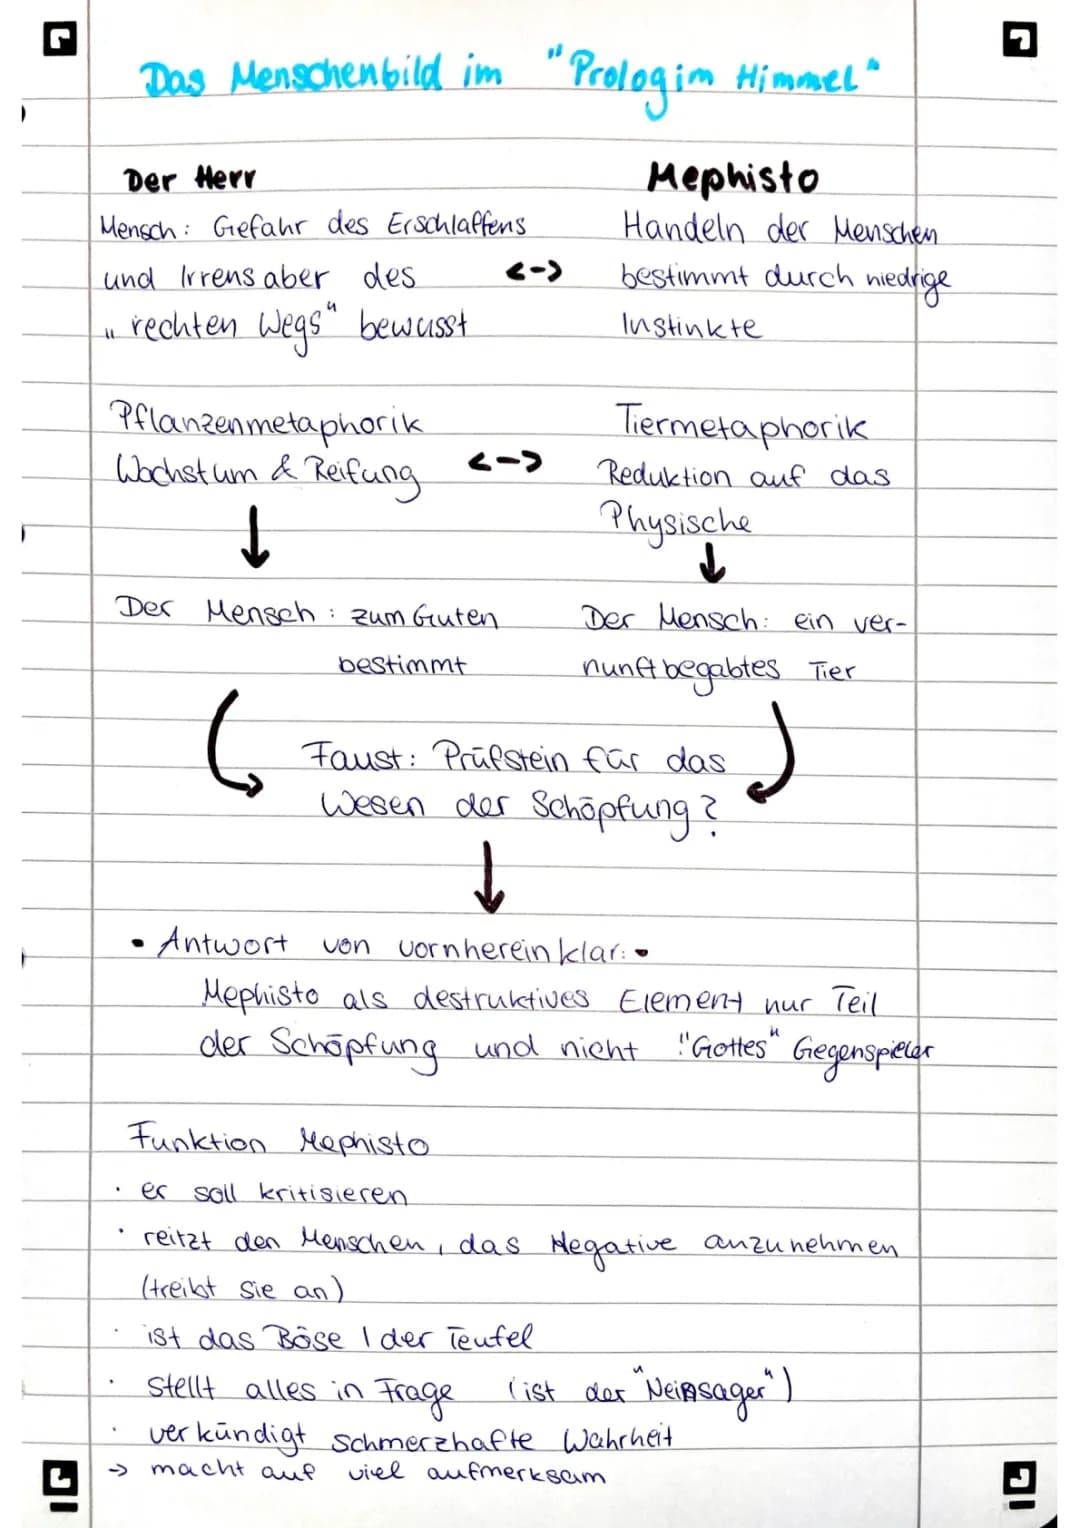 Das Menschenbild im "Prolog im Himmel"
Der Herr
Mensch: Gefahr des Erschlaffens
und Irrens aber des
„rechten Wegs" bewusst
<->
Mephisto
Handeln der Menschen
bestimmt durch niedrige
Instinkte
Pflanzenmetaphorik
Wachstum & Reifung
<->
Tiermetaphorik
Reduktion auf das
Physische
↓
↓
Der Mensch: zum Guten
bestimmt
Der Mensch: ein ver-
nunftbegabtes Tier
Faust: Prüfstein für das
Wesen der Schöpfung?
↓
• Antwort von vornherein klar: •
Mephisto als destruktives Element nur Teil
der Schöpfung und nicht "Gottes" Gegenspieler
Funktion Mephisto
· er soll kritisieren
· reitzt den Menschen, das Negative anzunehmen
(treibt sie an)
· ist das Böse / der Teufel
· stellt alles in Frage (ist der "Neinsager")
· verkündigt schmerzhafte Wahrheit
→ macht auf viel aufmerksam